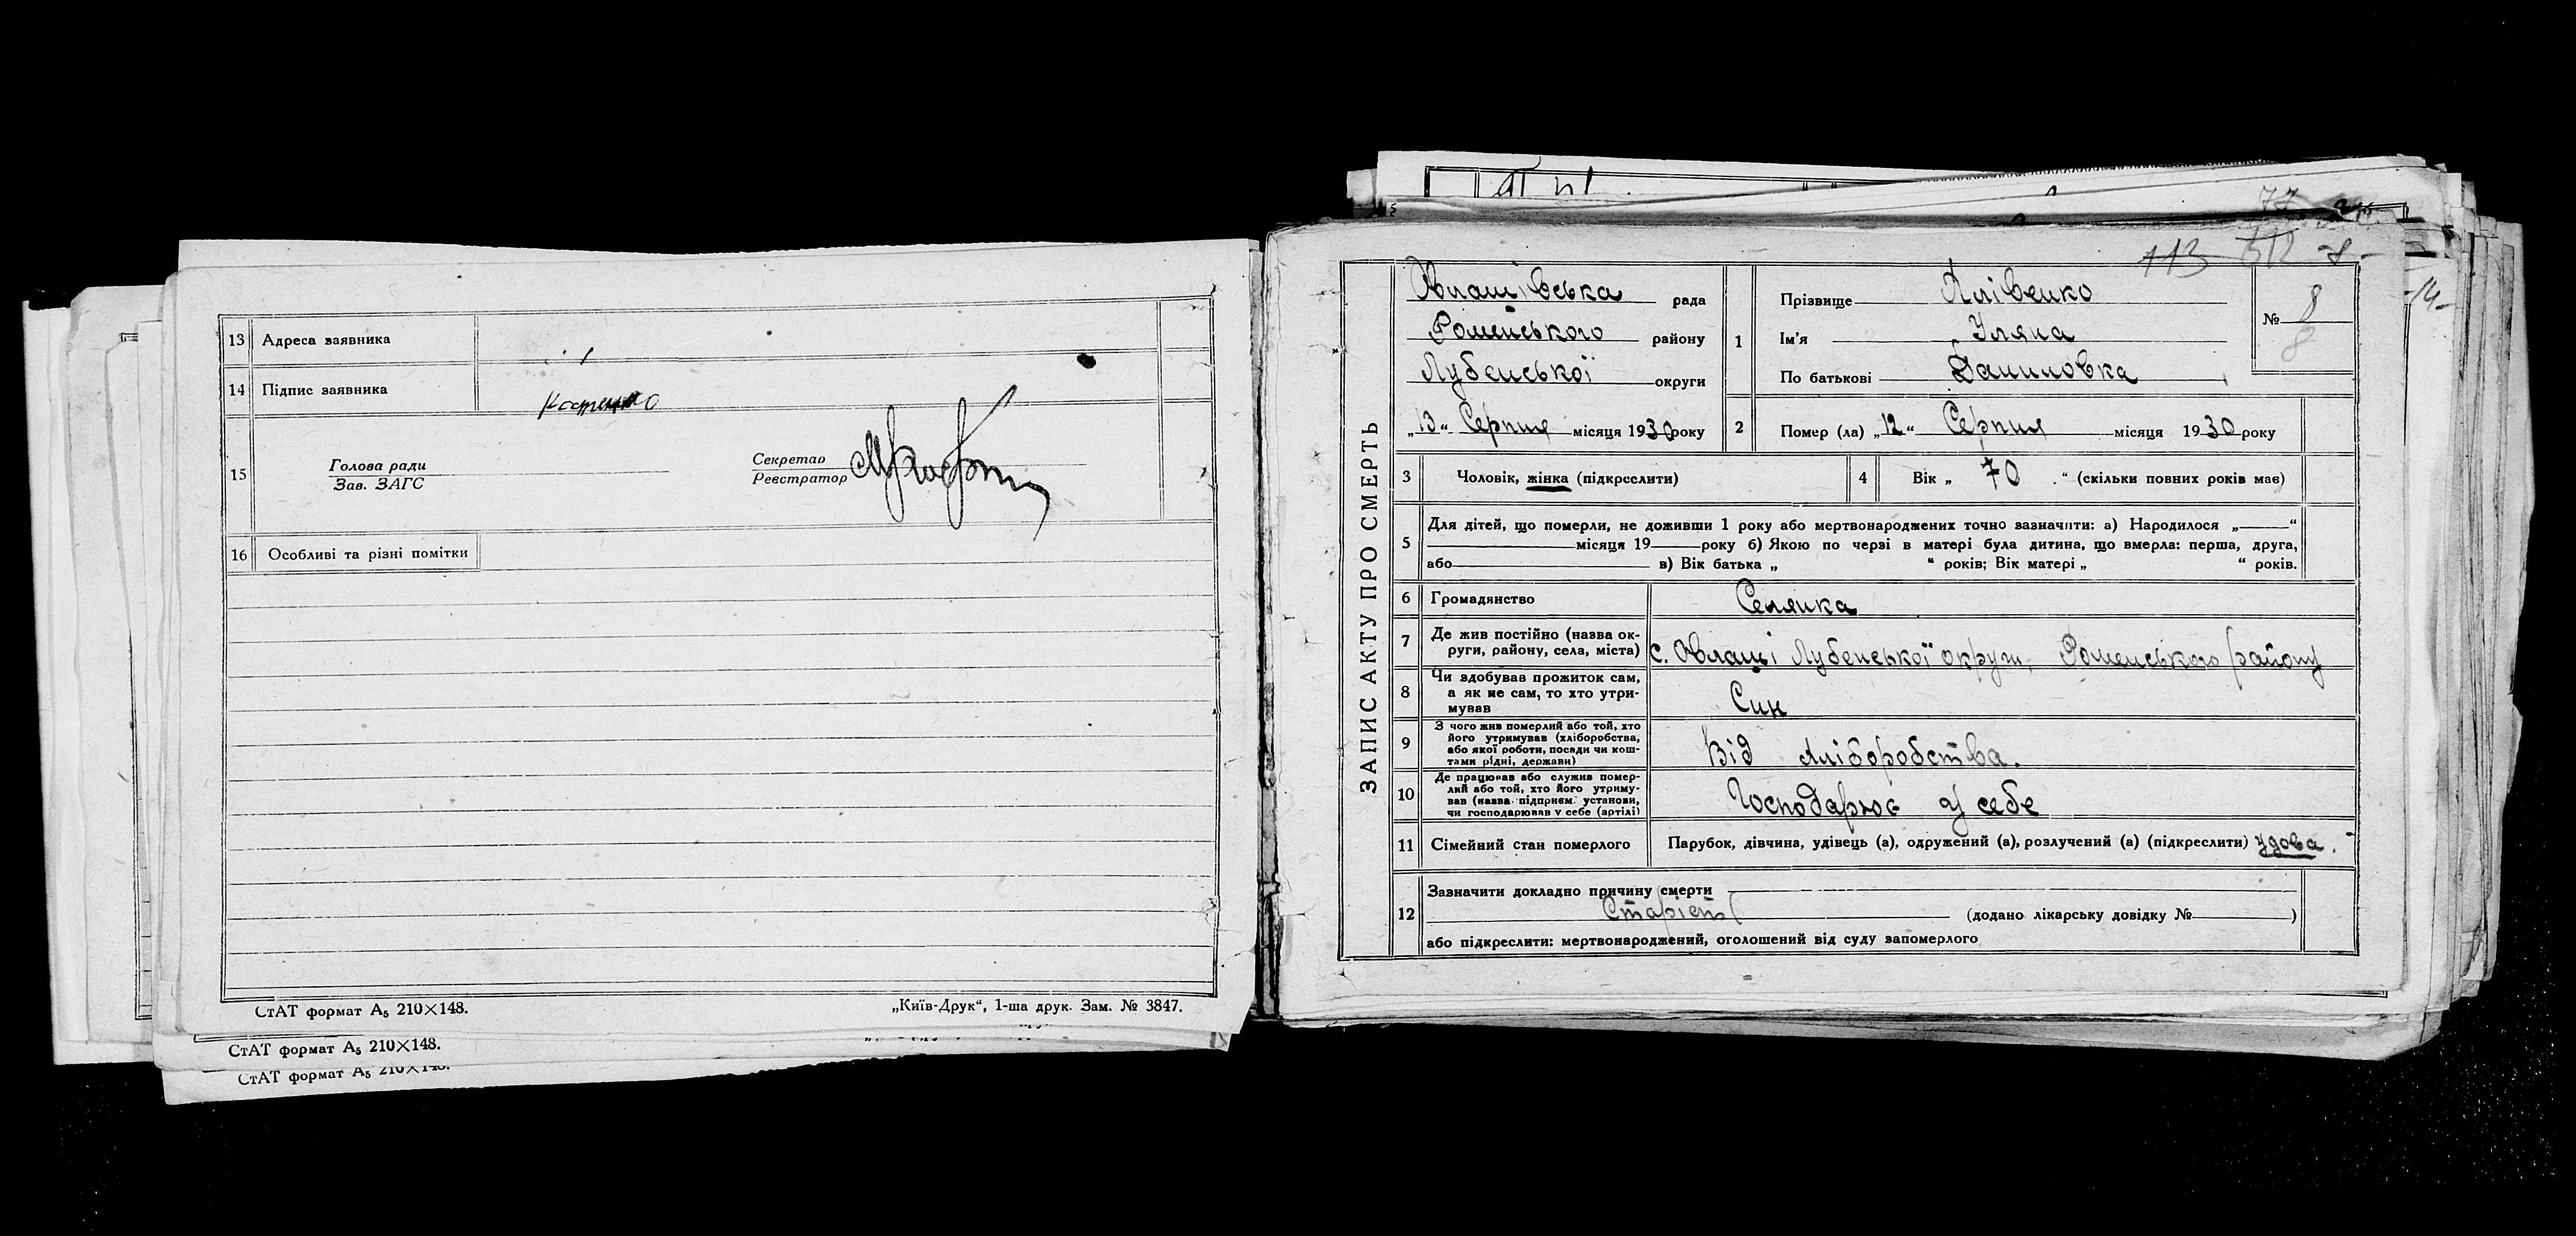 13 Адреса заявника
14 Підпис заявника
Костенко
15 Голова ради
Зав. ЗАГС
Секретар
Реєстратор
16 Особливі та різні помітки
СтАТ формат А₅ 210×148.
„Київ-Друк“, 1-ша друк. Зам. № 3847.
СтАТ формат А₅ 210×148.
СтАТ формат А₅ 210×148.
77
113 512 -8-
-14-
ЗАПИС АКТУ ПРО СМЕРТЬ
рада
Роменського району
Лубенської округи
„13“ Серпня місяця 1930 року
1 Прізвище Хлівенко
Ім'я Уляна
По батькові Даниловна
№ 8
8
2 Помер (ла) „12“ Серпня місяця 1930 року
3 Чоловік, жінка (підкреслити)
4 Вік „ 70 “ (скільки повних років має)
5 Для дітей, що померли, не доживши 1 року або мертвонароджених точно зазначити: а) Народилося „ “
місяця 19 року б) Якою по черзі в матері була дитина, що вмерла: перша, друга,
або в) Вік батька „ “ років; Вік матері „ “ років.
6 Громадянство Селянка
7 Де жив постійно (назва ок-
руги, району, села, міста) с. Лубенської округи, Роменського району
8 Чи здобував прожиток сам,
а як не сам, то хто утри-
мував Син
9 З чого жив померлий або той, хто
його утримував (хліборобства,
або якої роботи, посади чи кош-
тами рідні, держави) Від хліборобства.
10 Де працював або служив помер-
лий або той, хто його утриму-
вав (назва підприєм. установи,
чи господарював у себе (артілі) Господарює у себе
11 Сімейний стан померлого Парубок, дівчина, удівець (а), одружений (а), розлучений (а) (підкреслити) удова.
12 Зазначити докладно причину смерти
Старість (додано лікарську довідку № )
або підкреслити: мертвонароджений, оголошений від суду запомерлого